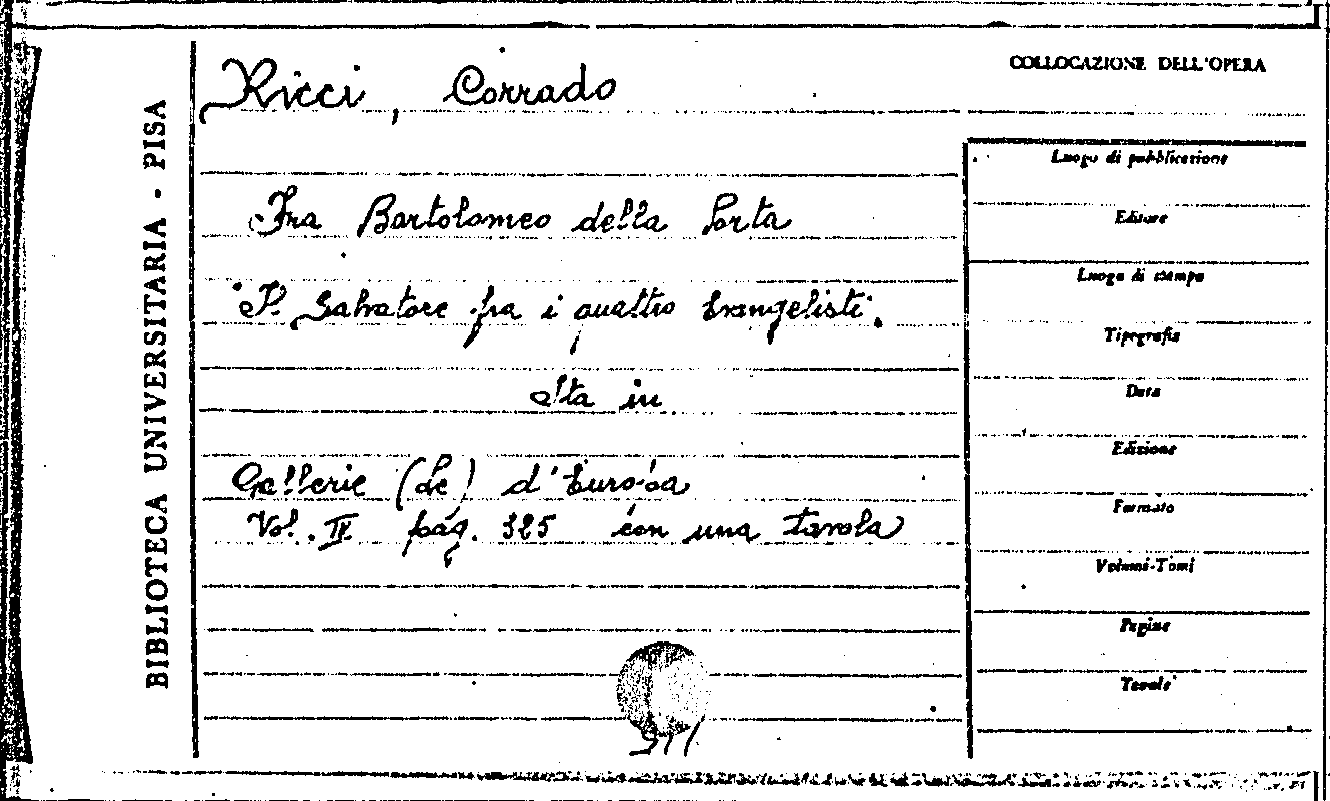 COLLOCAZIONE DELL'OPERA
Ricci, Corrado
BIBLIOTECA UNIVERSITARIA - PISA
Fra Bartolomeo della Porta
"Il Salvatore fra i quattro Evangelisti".
Sta in
Gallerie (Le) d'Europa
Vol. IV pag. 325 con una tavola
Luogo di pubblicazione
Editore
Luogo di stampa
Tipografia
Data
Edizione
Formato
Volumi-Tomi
Pagine
Tavole